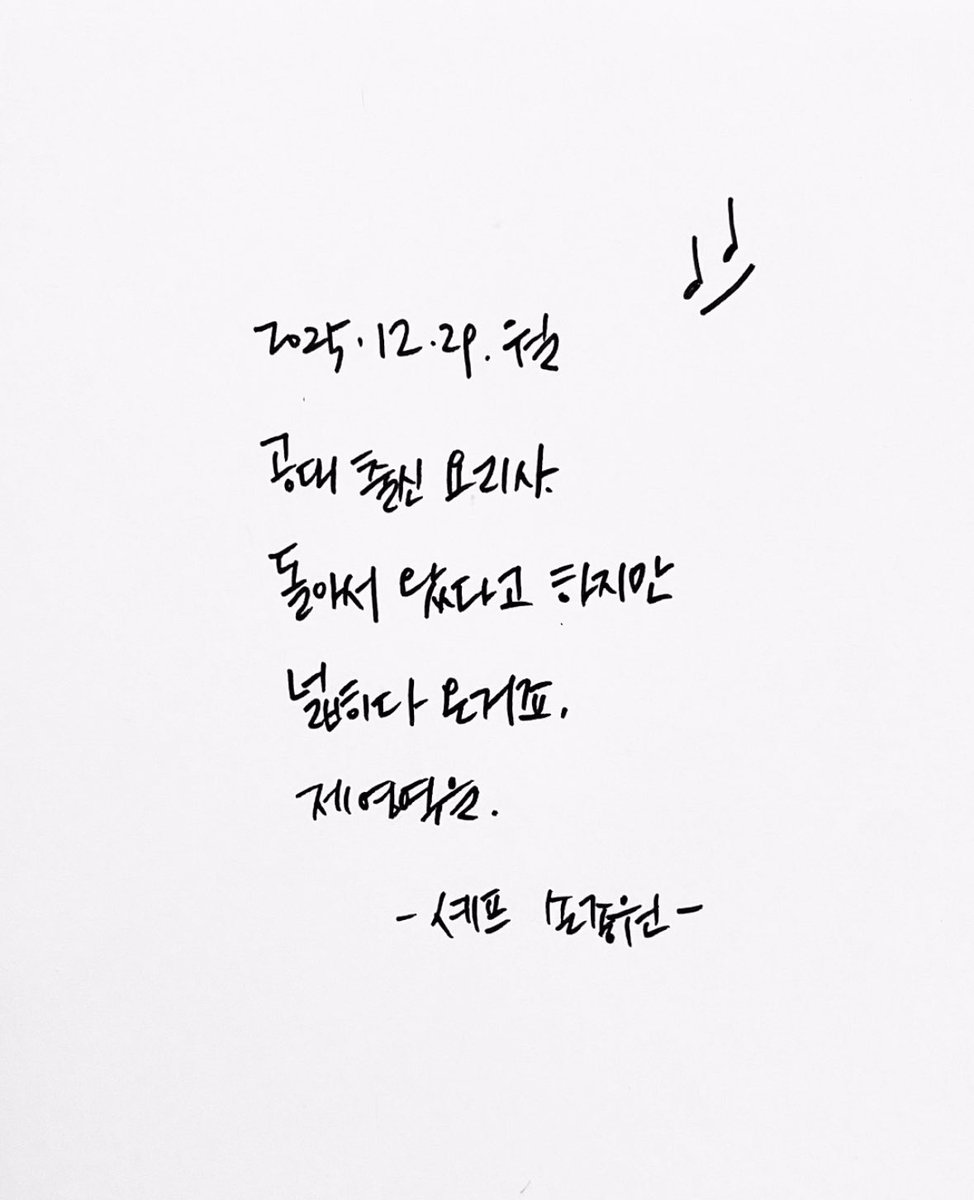 2025.12.29. 월
공대 출신 요리사.
돌아서 왔다고 하지만
넓히다 온거죠.
제 영역을.
- 셰프 손종원 -